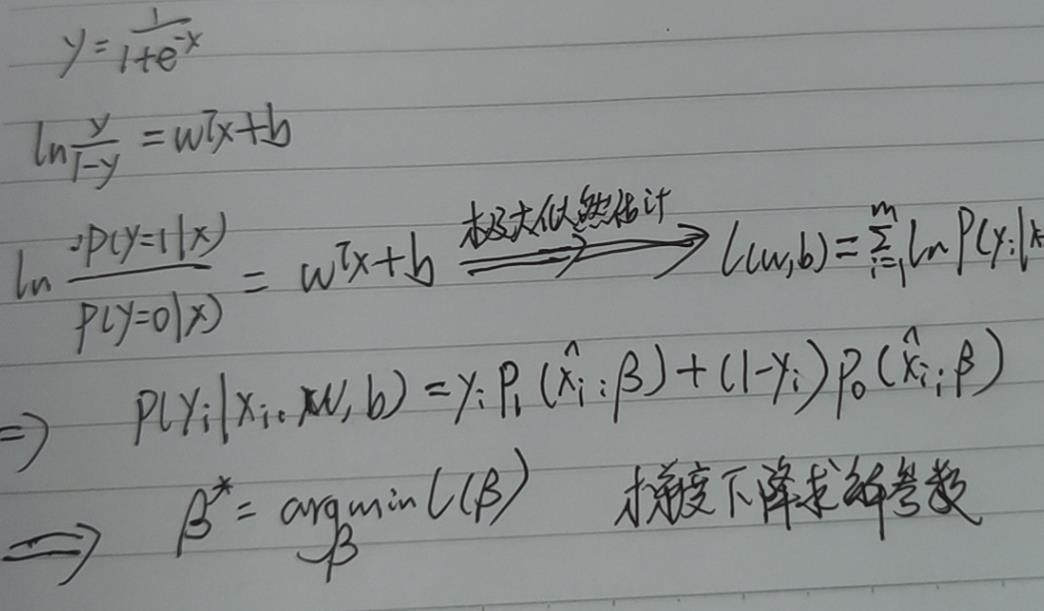 y = 1/(1+e^{-x})
ln y/(1-y) = w^T x + b
ln P(y=1|x)/P(y=0|x) = w^T x + b 极大似然估计 ⟹ L(w,b) = Σ_{i=1}^{m} ln P(y_i|x
⇒ P(y_i|x_i; w, b) = y_i P_1(x̂_i; β) + (1-y_i) P_0(x̂_i; β)
⟹ β* = argmin_β L(β) 梯度下降求解参数